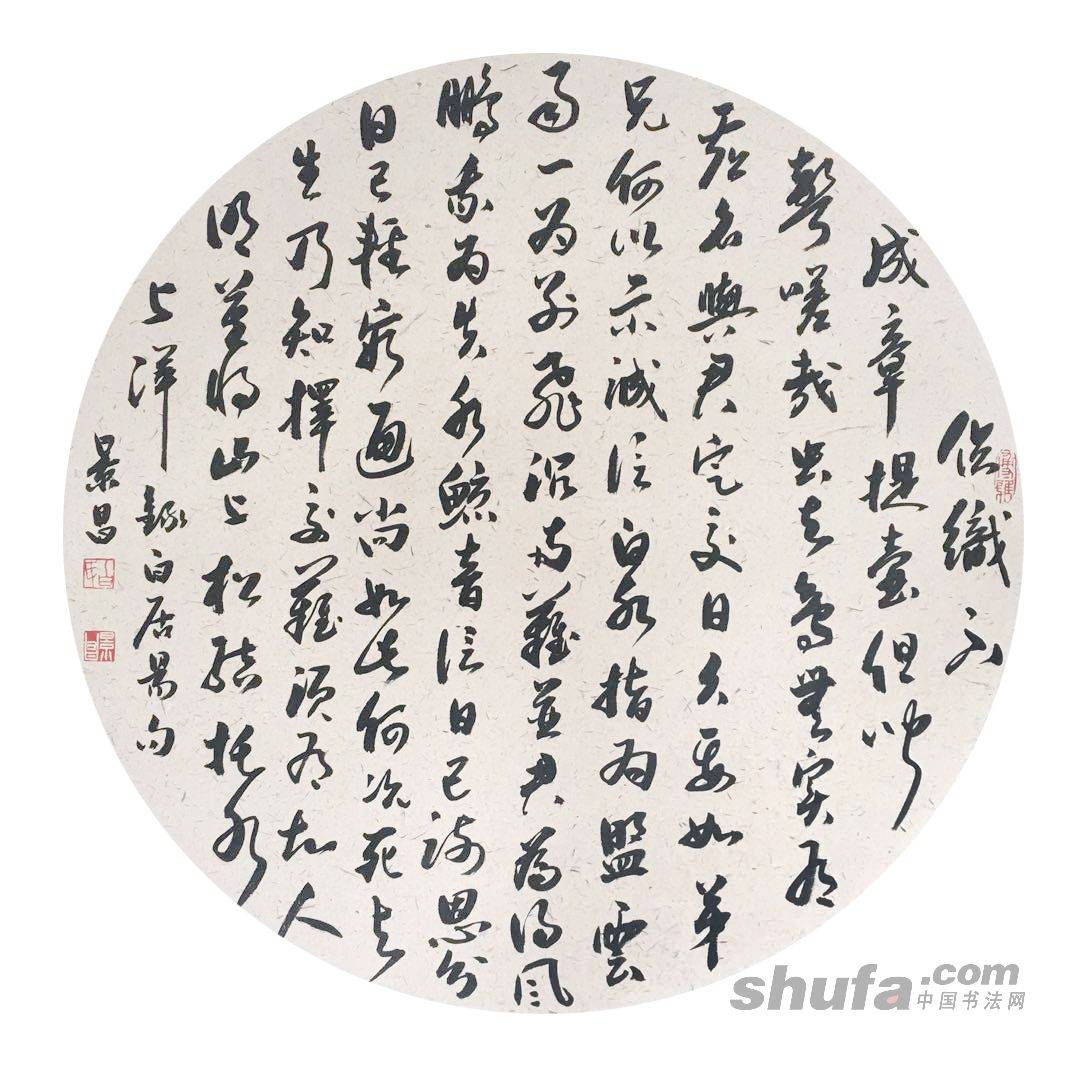 促織不
成章提壺但聞
聲嗟哉虫与鳥無實有
虛名與君定交日久要如弟
兄何以示誠信白水指為盟雲
雨一為別飛沉兩難並君為得風
鵬我為失水鯨音信日已疏恩分
日已輕窮通尚如此何況死与
生乃知擇交難須有知人
明莫將山上松結托水
上萍 錄白居易句
景昌
shufa.com
中国书法网